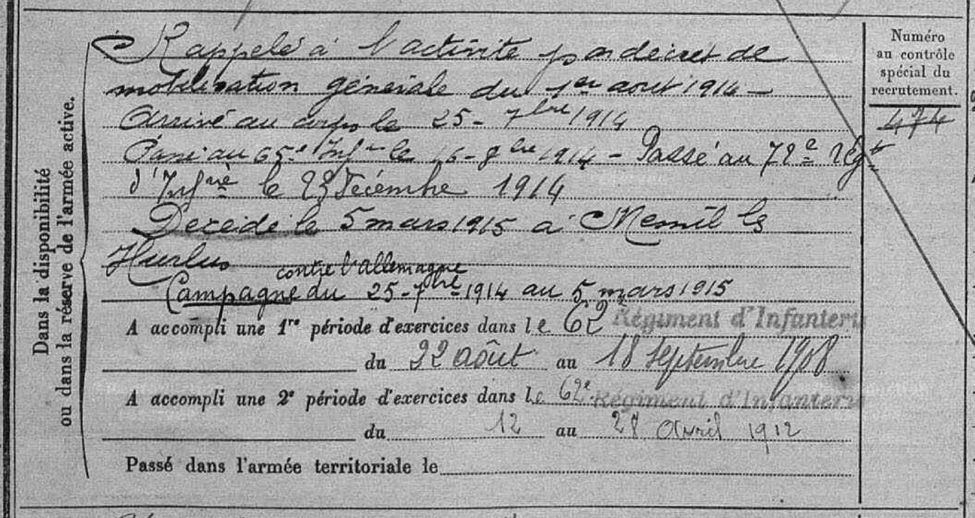 Dans la disponibilité
ou dans la réserve de l'armée active.
Rappelé à l'activité par décret de
mobilisation générale du 1er aout 1914 –
Arrivé au corps le 25 - 7bre 1914
Passé au 65e Infrie le 16 - 8bre 1914 – Passé au 72e Régt
d'Infrie le 23 Décembre 1914
Décédé le 5 mars 1915 à Mesnil les
Hurlus
contre l'allemagne
Campagne du 25 - 7bre 1914 au 5 mars 1915
A accompli une 1re période d'exercices dans le 62 Régiment d'Infanterie
du 22 août au 18 Septembre 1908
A accompli une 2e période d'exercices dans le 62e Régiment d'Infanterie
du 12 au 28 avril 1912
Passé dans l'armée territoriale le
Numéro
au contrôle
spécial du
recrutement.
474